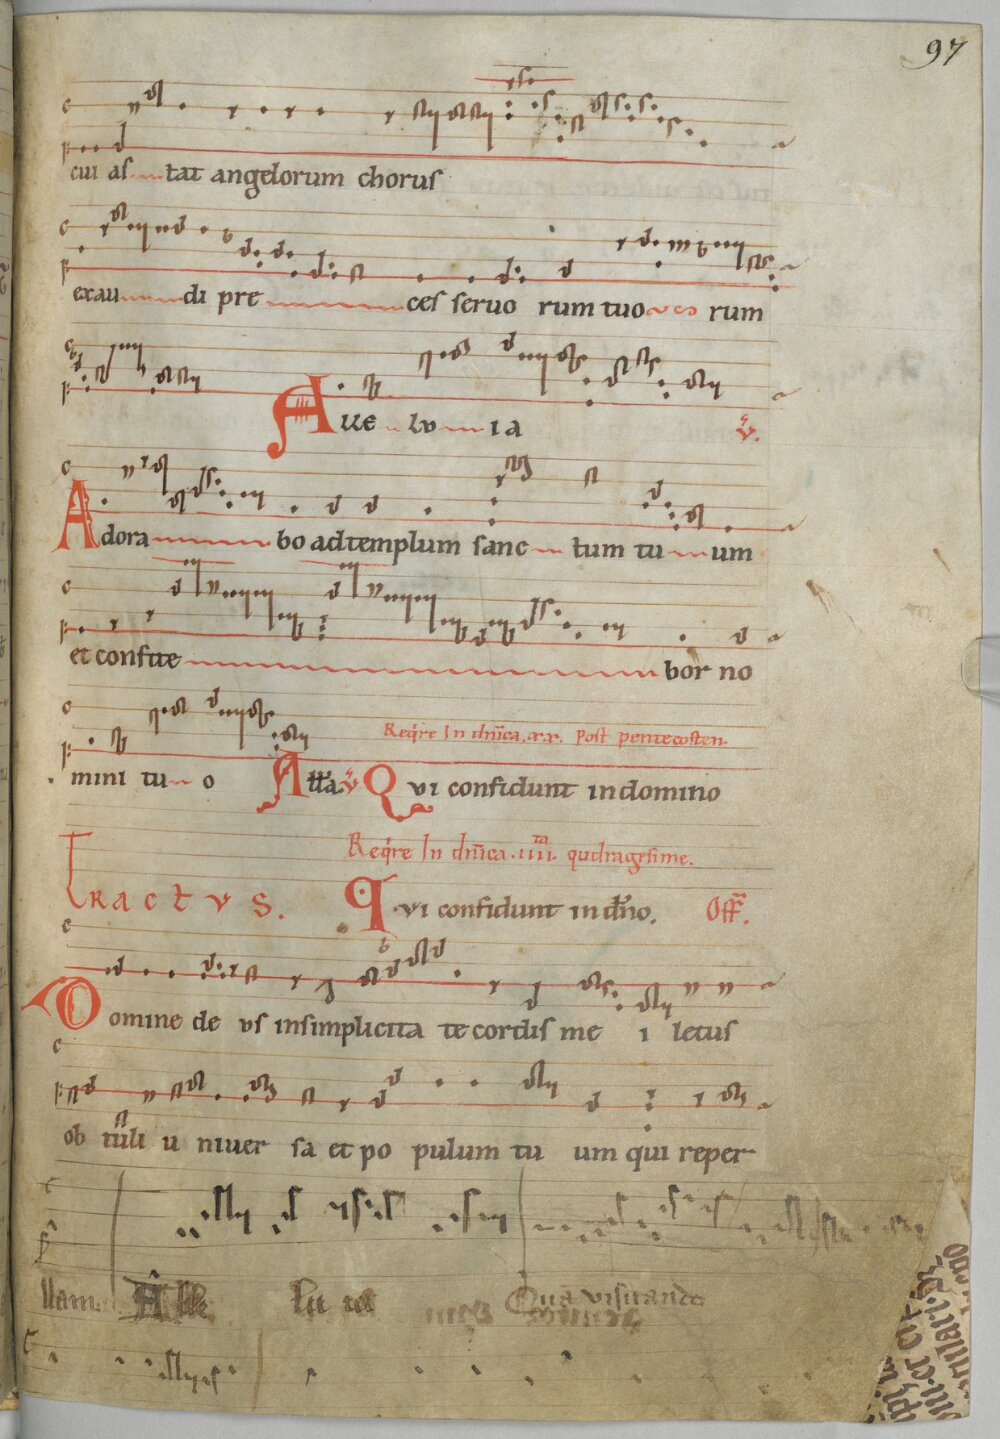 97
cui as tat angelorum chorus
exau di pre ces seruo rum tuo rum
Alle lu ia ℣.
Adora bo ad templum sanc tum tu um
et confite bor no
Reqͥre In dn̄ica .xx. post pentecosten.
mini tu o All̄a ℣ Qui confidunt in domino
Reqͥre In dn̄ica .iiii.ta qudragesime.
Tractus. Qui confidunt in dn̄o. Off̄.
Domine de us in simplicita te cordis me i letus
ob tuli u niuer sa et po pulum tu um qui reper
Alle lu ia Qua visitando